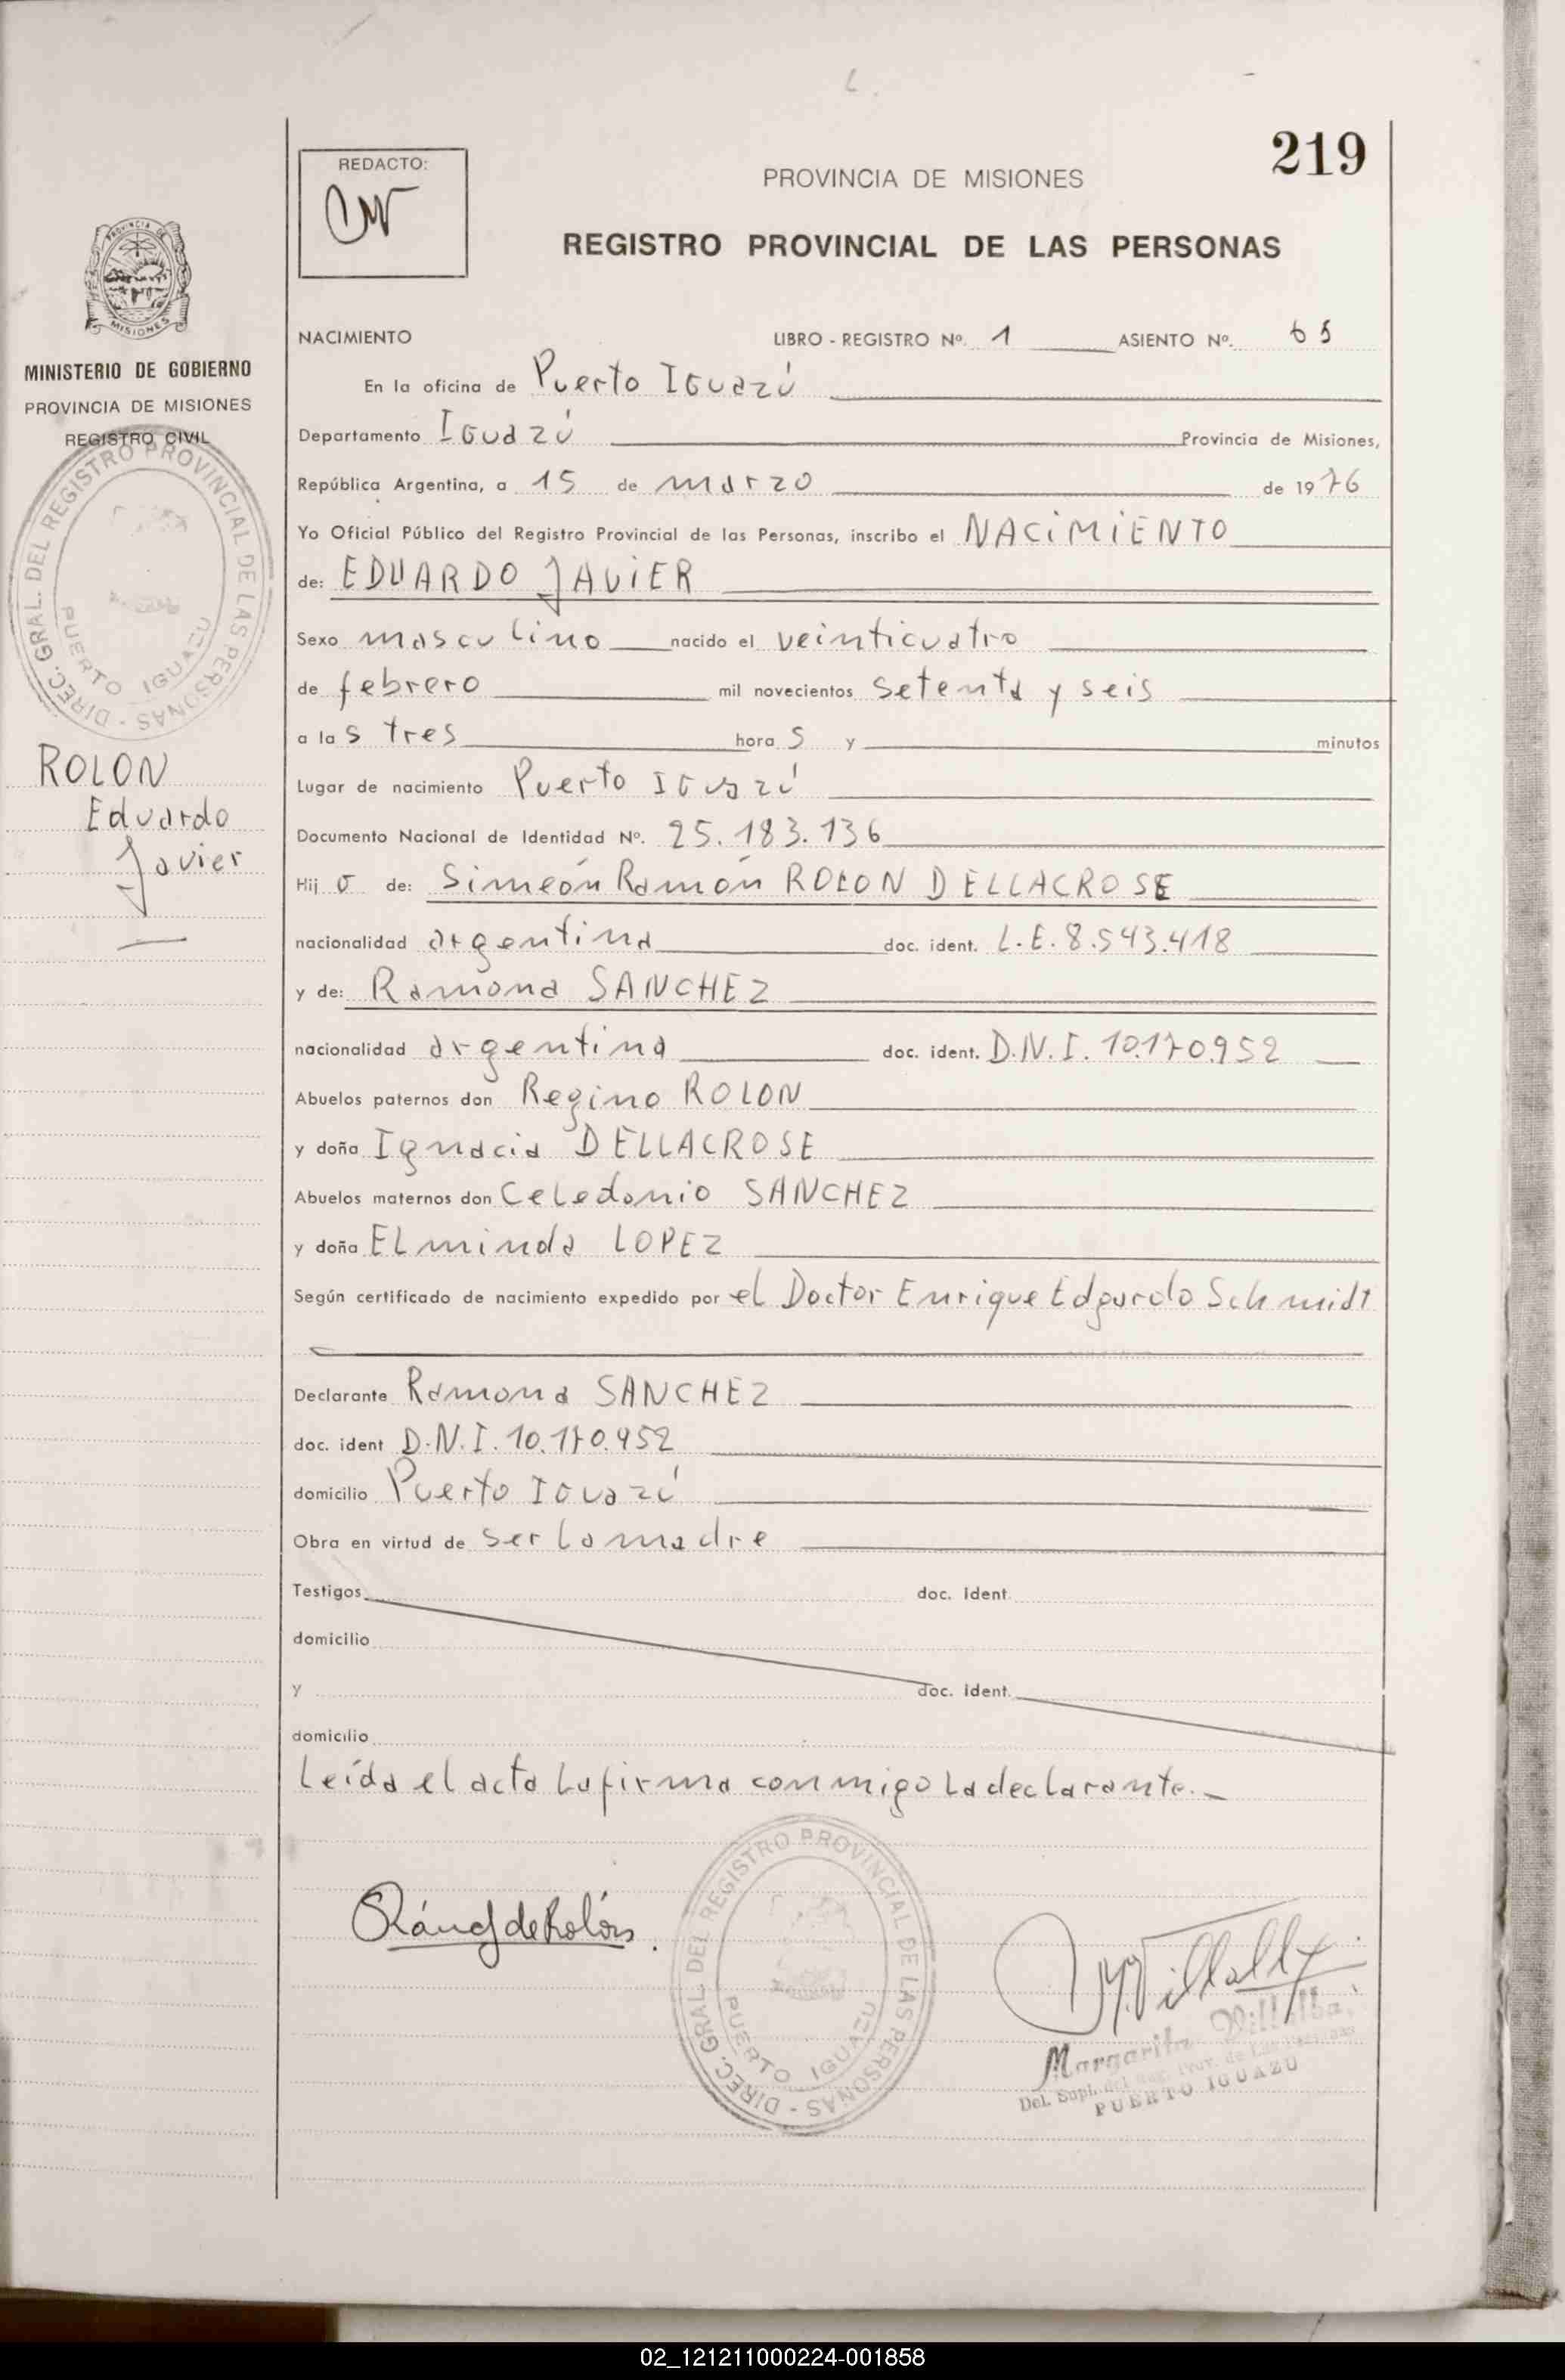 219
REDACTO:
PROVINCIA DE MISIONES
REGISTRO PROVINCIAL DE LAS PERSONAS
PROVINCIA DE
MISIONES
MINISTERIO DE GOBIERNO
PROVINCIA DE MISIONES
REGISTRO CIVIL
DIREC. GRAL. DEL REGISTRO PROVINCIAL DE LAS PERSONAS -
PUERTO IGUAZU
ROLON
Eduardo
Javier
NACIMIENTO LIBRO - REGISTRO Nº. 1 ASIENTO Nº. 65
En la oficina de Puerto Iguazú
Departamento Iguazú Provincia de Misiones,
República Argentina, a 15 de marzo de 1976
Yo Oficial Público del Registro Provincial de las Personas, inscribo el NACIMIENTO
de: EDUARDO JAVIER
Sexo masculino nacido el veinticuatro
de febrero mil novecientos setenta y seis
a las tres horas y minutos
Lugar de nacimiento Puerto Iguazú
Documento Nacional de Identidad Nº. 25.183.136
Hijo de: Simeón Ramón ROLON DELLACROSE
nacionalidad argentina doc. ident. L.E. 8.543.418
y de: Ramona SANCHEZ
nacionalidad argentina doc. ident. D.N.I. 10.170.952
Abuelos paternos don Regino ROLON
y doña Ignacia DELLACROSE
Abuelos maternos don Celedonio SANCHEZ
y doña Elminda LOPEZ
Según certificado de nacimiento expedido por el Doctor Enrique Edgardo Schmidt
Declarante Ramona SANCHEZ
doc. ident D.N.I. 10.170.952
domicilio Puerto Iguazú
Obra en virtud de ser la madre
Testigos doc. ident.
domicilio
y doc. ident.
domicilio
Leída el acta la firma conmigo la declarante.-
DIREC. GRAL. DEL REGISTRO PROVINCIAL DE LAS PERSONAS -
PUERTO IGUAZU
Margarita Villalba
Del. Supl. del Reg. Prov. de Las Personas
PUERTO IGUAZU
02_121211000224-001858